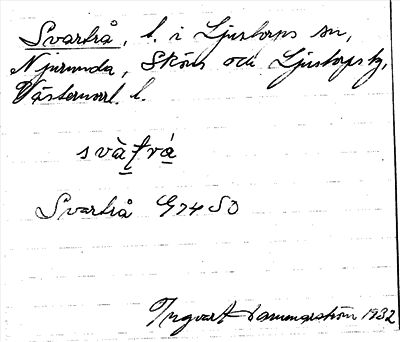 Svartrå, l. i Ljustorps sn,
Njurunda, Sköns och Ljustorps tg,
Västernorrl. l.
svàt̯vá
Svartrå G74 SO
Ingvar Hammarström 1932